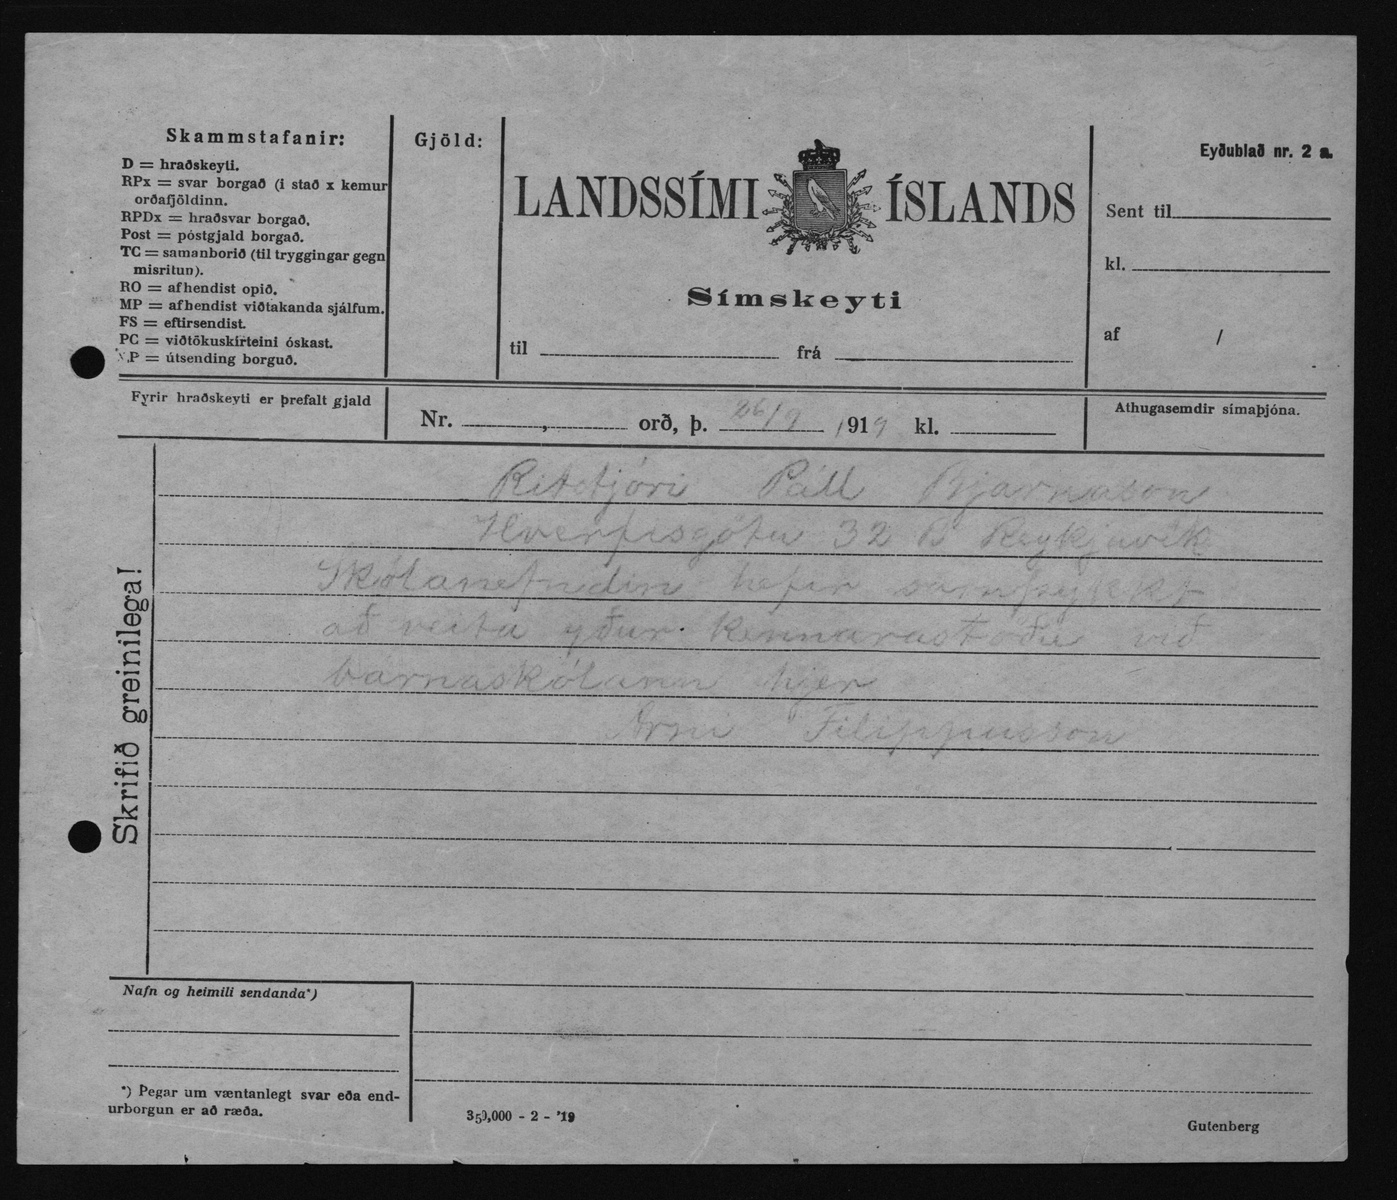 Skammstafanir:
D = hraðskeyti.
RPx = svar borgað (i stað x kemur
orðafjöldinn.
RPDx = hraðsvar borgað.
Post = póstgjald borgað.
TC = samanborið (til tryggingar gegn
misritun).
RO = afhendist opið.
MP = afhendist viðtakanda sjálfum.
FS = eftirsendist.
PC = viðtökuskírteini óskast.
XP = útsending borguð.
Gjöld:
LANDSSÍMI ÍSLANDS
Símskeyti
til frá
Eyðublað nr. 2 a.
Sent til
kl.
af /
Fyrir hraðskeyti er þrefalt gjald
Nr. , orð, þ. 26/9 1919 kl.
Athugasemdir símaþjóna.
Skrifið greinilega!
Ritstjóri Páll Bjarnason
Hverfisgötu 32 B Reykjavík
Skólanefndin hefir samþykkt
að veita yður kennarastöðu við
barnaskólann hjer
Árni Filippusson
Nafn og heimili sendanda*)
*) Þegar um væntanlegt svar eða end-
urborgun er að ræða.
350,000 - 2 - '19
Gutenberg